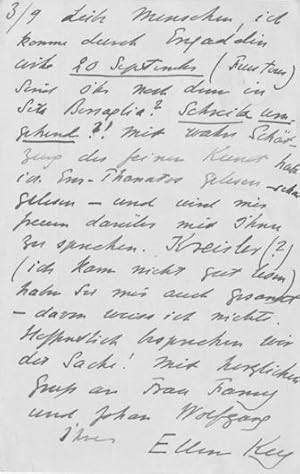 3/9 Liebe Menschen, ich
komme durch Engaddin
circa 20 September (
Sind Sie noch dann in
Sils Bersaglia? Schreib um-
gehend?! Mit wahr Schät-
zung der feiner Kunst habe
ich Eros-Thanatos gelesen
gelesen – und wird mir
freuen darüber mit Ihnen
zu sprechen. Kreisler (?)
(ich kann nicht gut lesen)
haben Sie mir auch gesandt
– davon weiss ich nichts.
Hoffentlich besprechen wir
der Sache! Mit herzlichen
Gruss an Frau Fanny
und Johan Wolfgang
Ihre
Ellen Key